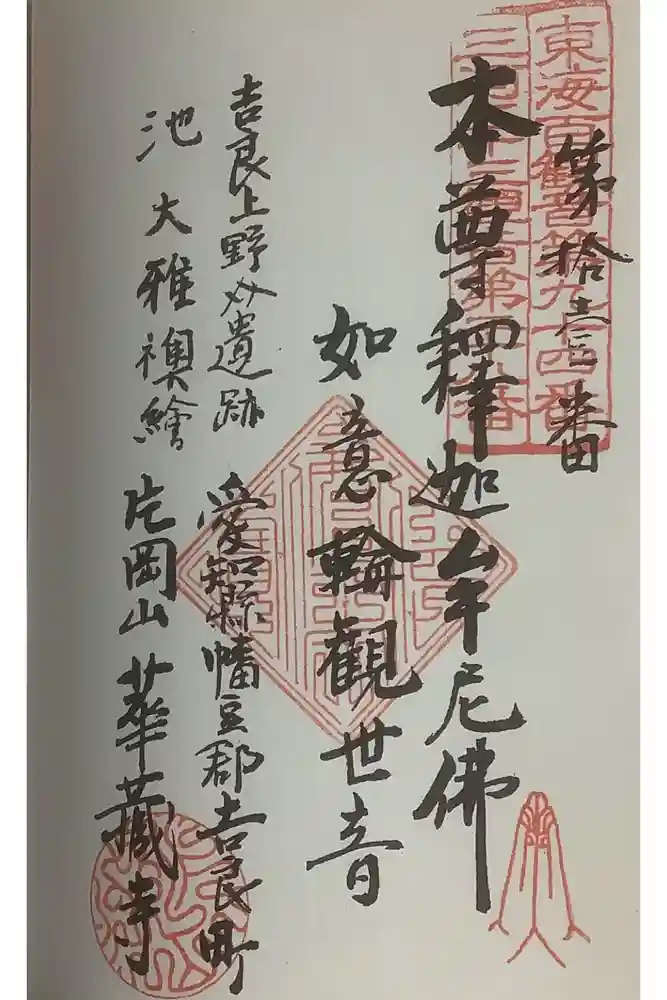 東海百観音第九十四番
三河三十三観音第二八番
第拾三番
本尊釋迦牟尼佛
如意輪觀世音
吉良上野介遺跡
愛知縣幡豆郡吉良町
池大雅襖繪
片岡山華藏寺